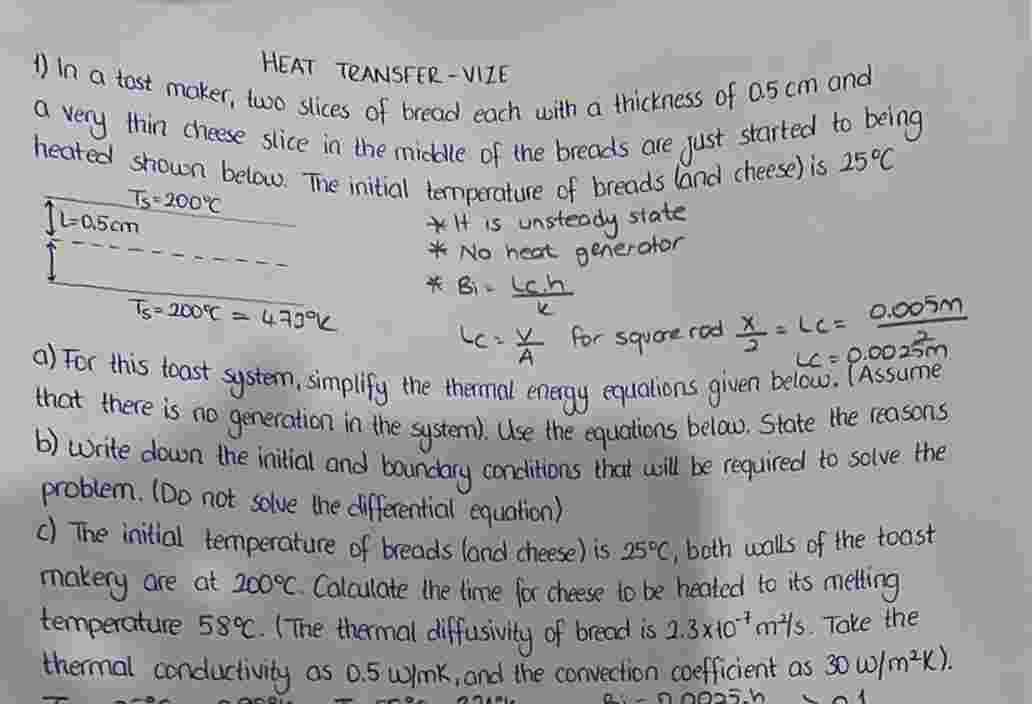 HEAT TRANSFER - VIZE
1) In a tost maker, two slices of bread each with a thickness of 0.5 cm and
a very thin cheese slice in the middle of the breads are just started to being
heated shown below. The initial temperature of breads (and cheese) is 25°C
Ts = 200°C
L=0.5cm
Ts = 200°C = 473°K
* It is unsteady state
* No heat generator
* Bi = Lc.h / k
Lc = V / A for square rod x / 2 = Lc = 0.005m / 2
Lc = 0.0025m
a) For this toast system, simplify the thermal energy equations given below. (Assume
that there is no generation in the system). Use the equations below. State the reasons
b) Write down the initial and boundary conditions that will be required to solve the
problem. (Do not solve the differential equation)
c) The initial temperature of breads (and cheese) is 25°C, both walls of the toast
makery are at 200°C. Calculate the time for cheese to be heated to its melting
temperature 58°C. (The thermal diffusivity of bread is 2.3x10⁻⁷ m²/s. Take the
thermal conductivity as 0.5 w/mK, and the convection coefficient as 30 w/m²K).